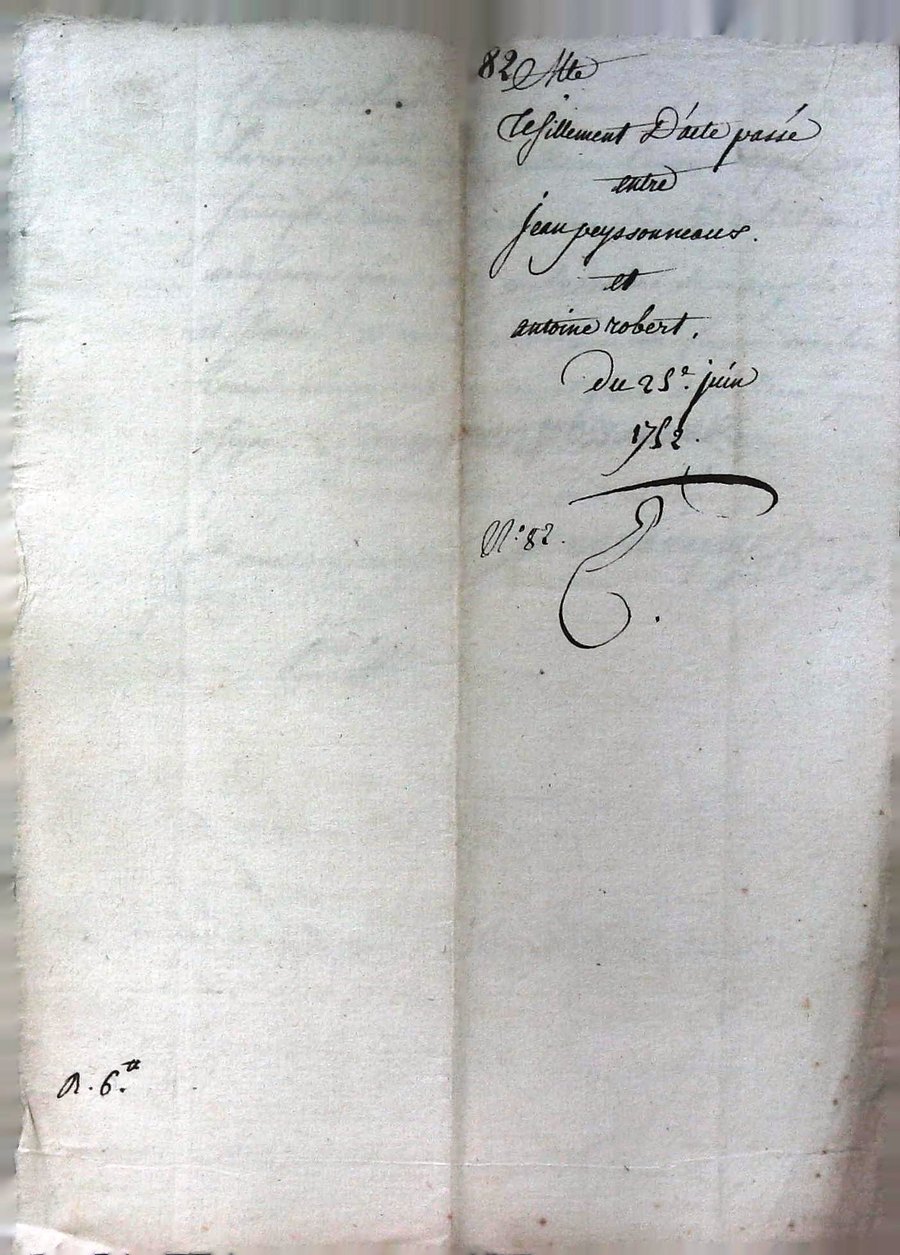 82 Atte
Resillement D'acte passé
entre
jean peyssonneaux.
et
antoine robert.
du 25e. juin
1752.
N.° 82.
R. 6.tt